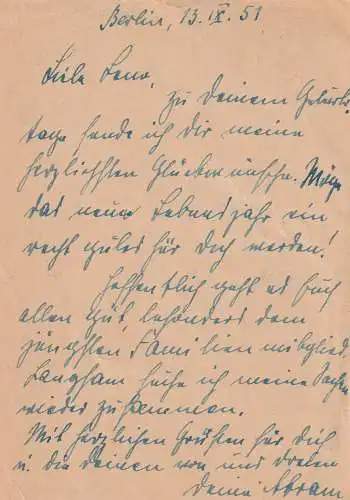 Berlin, 13. IX. 51
Liebe Lena,
zu Deinem Geburts-
tage sende ich Dir meine
herzlichsten Glückwünsche. Möge
das neue Lebensjahr ein
recht gutes für Dich werden!
Hoffentlich geht es Euch
allen gut, besonders dem
jüngsten Familienmitglied.
Langsam suche ich meine Sachen
wieder zusammen.
Mit herzlichen Grüßen für Dich
u. die Deinen von uns dreien
Deine